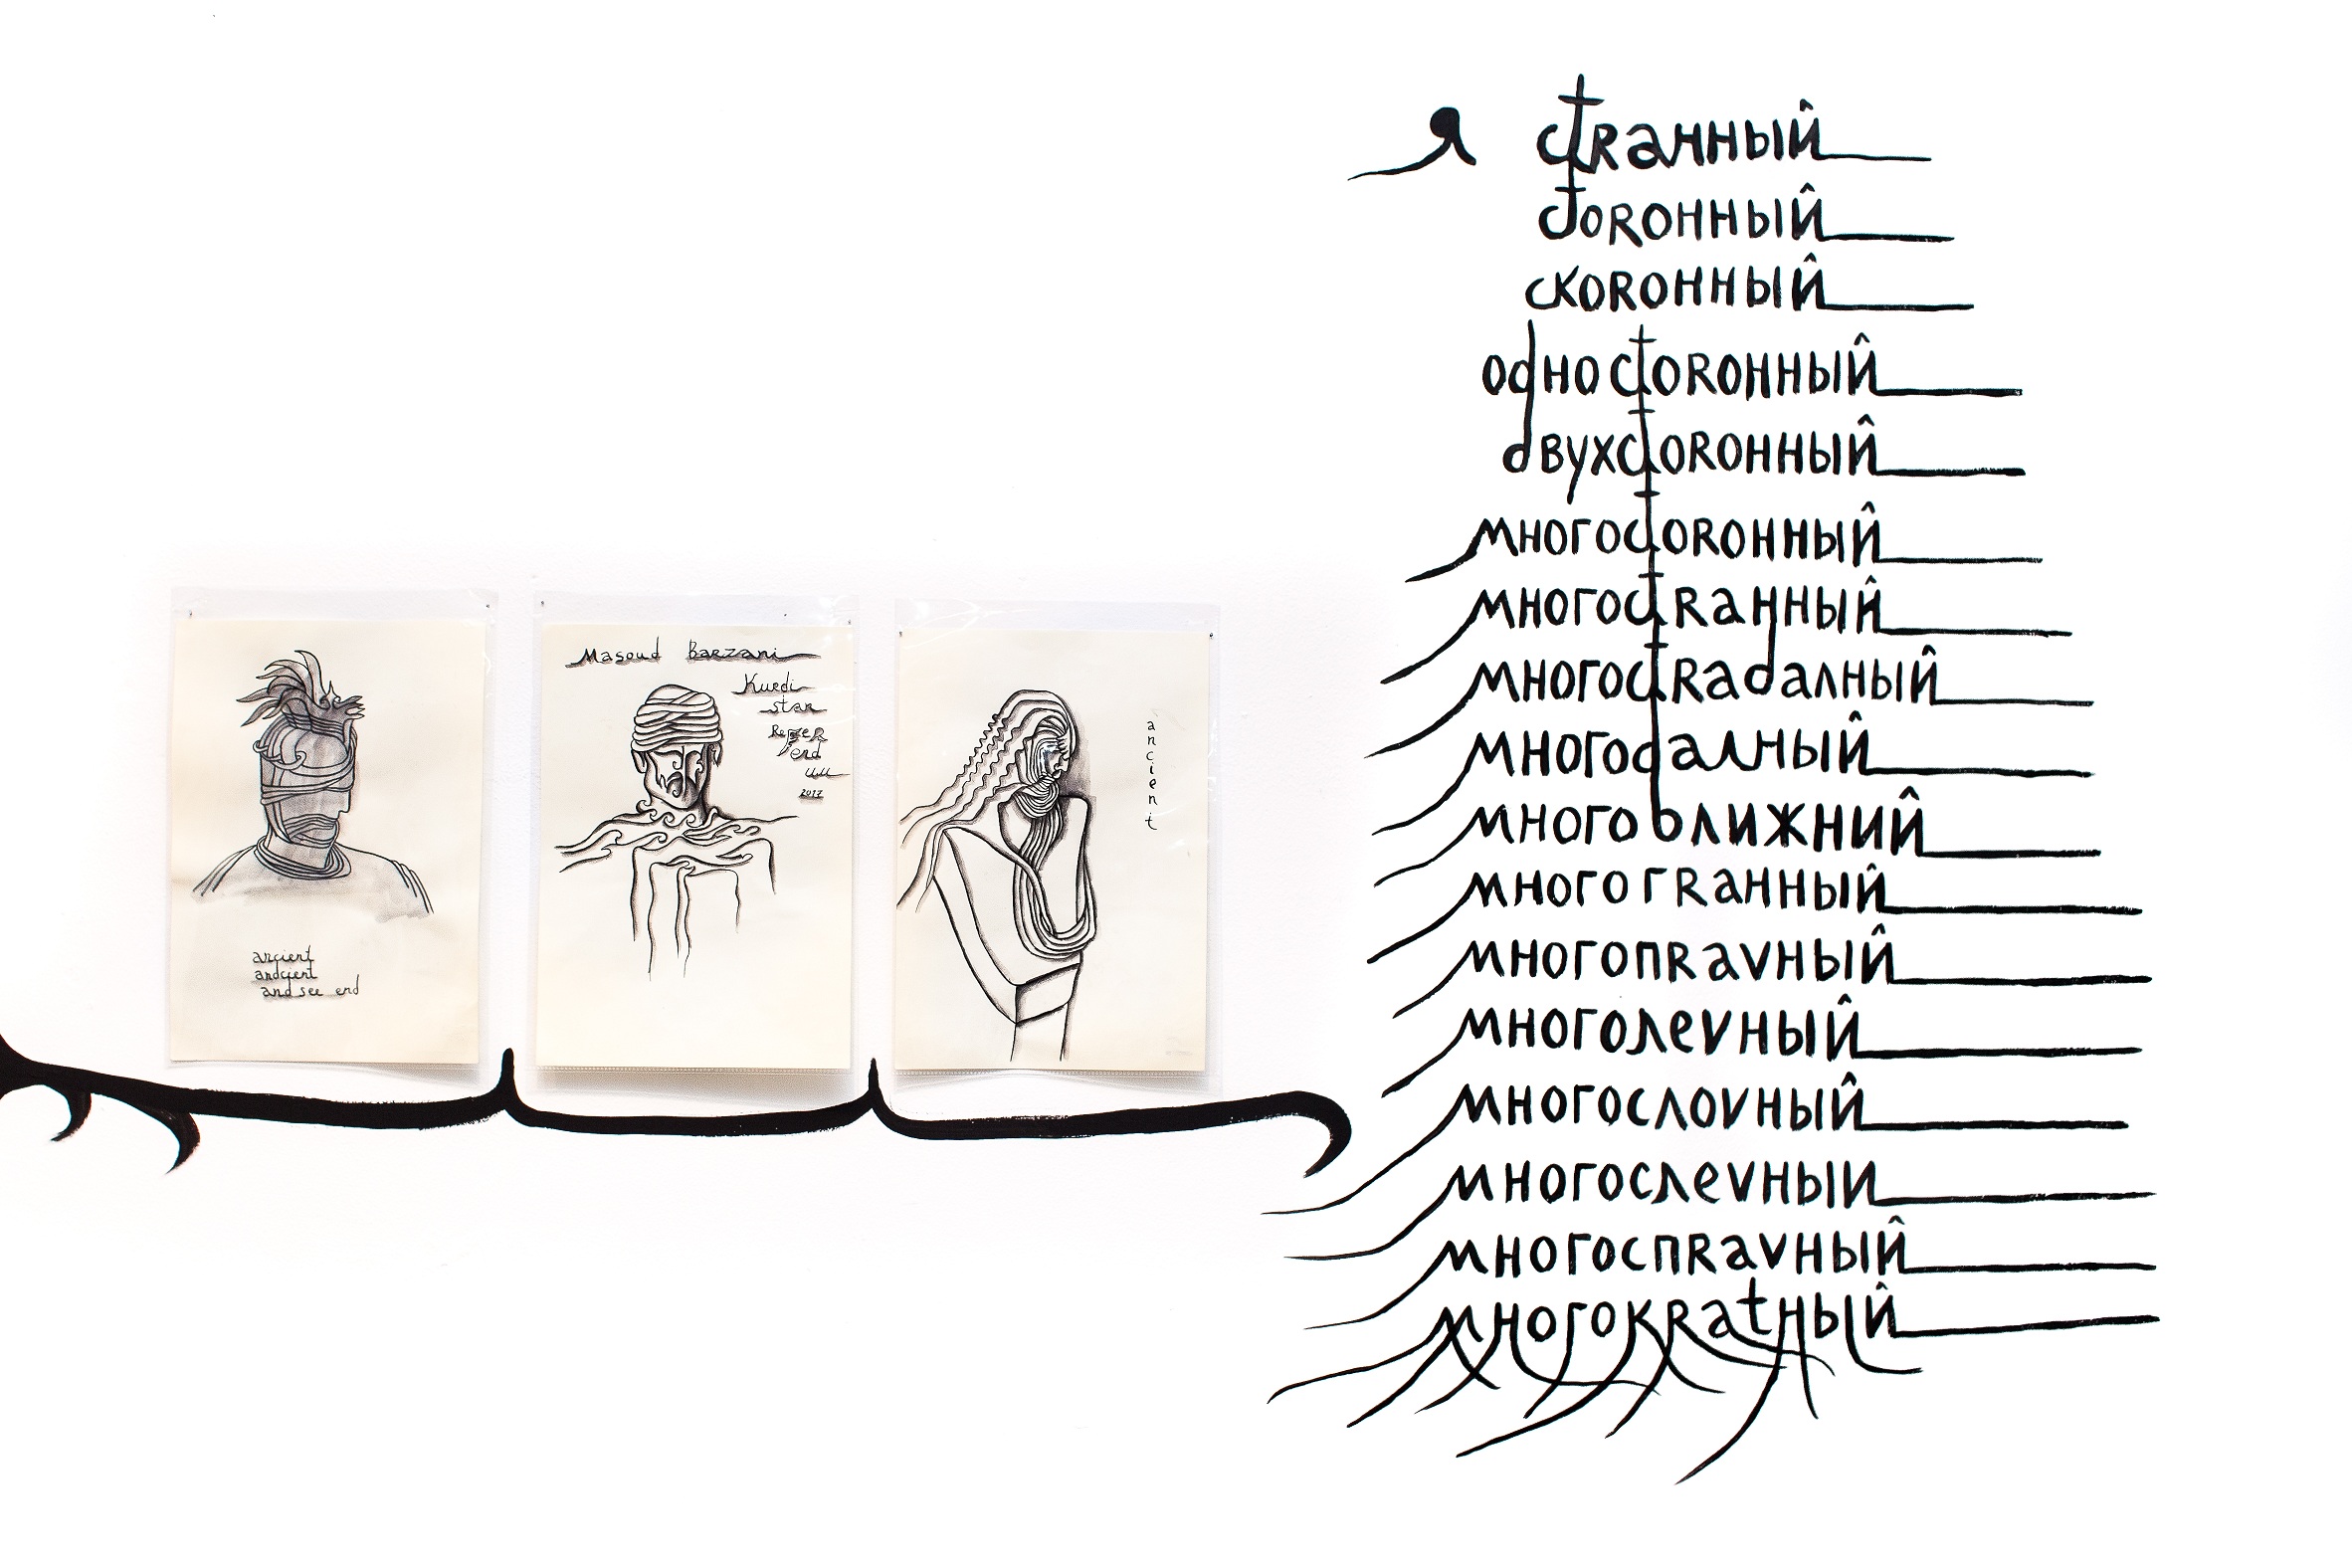 ancient
andcient
and see end
Masoud Barzani
Kurdi
stan
Refer
end
um
2017
ancient
я сtRанный
сtоRонный
скоRонный
одно сtоRонный
двухсtоRонный
многосtоRонный
многосtRанный
многосtRадалный
многодалный
многоближний
многогRанный
многопRаvный
многолеvный
многослоvный
многослеvный
многоспRаvный
многокRаtный